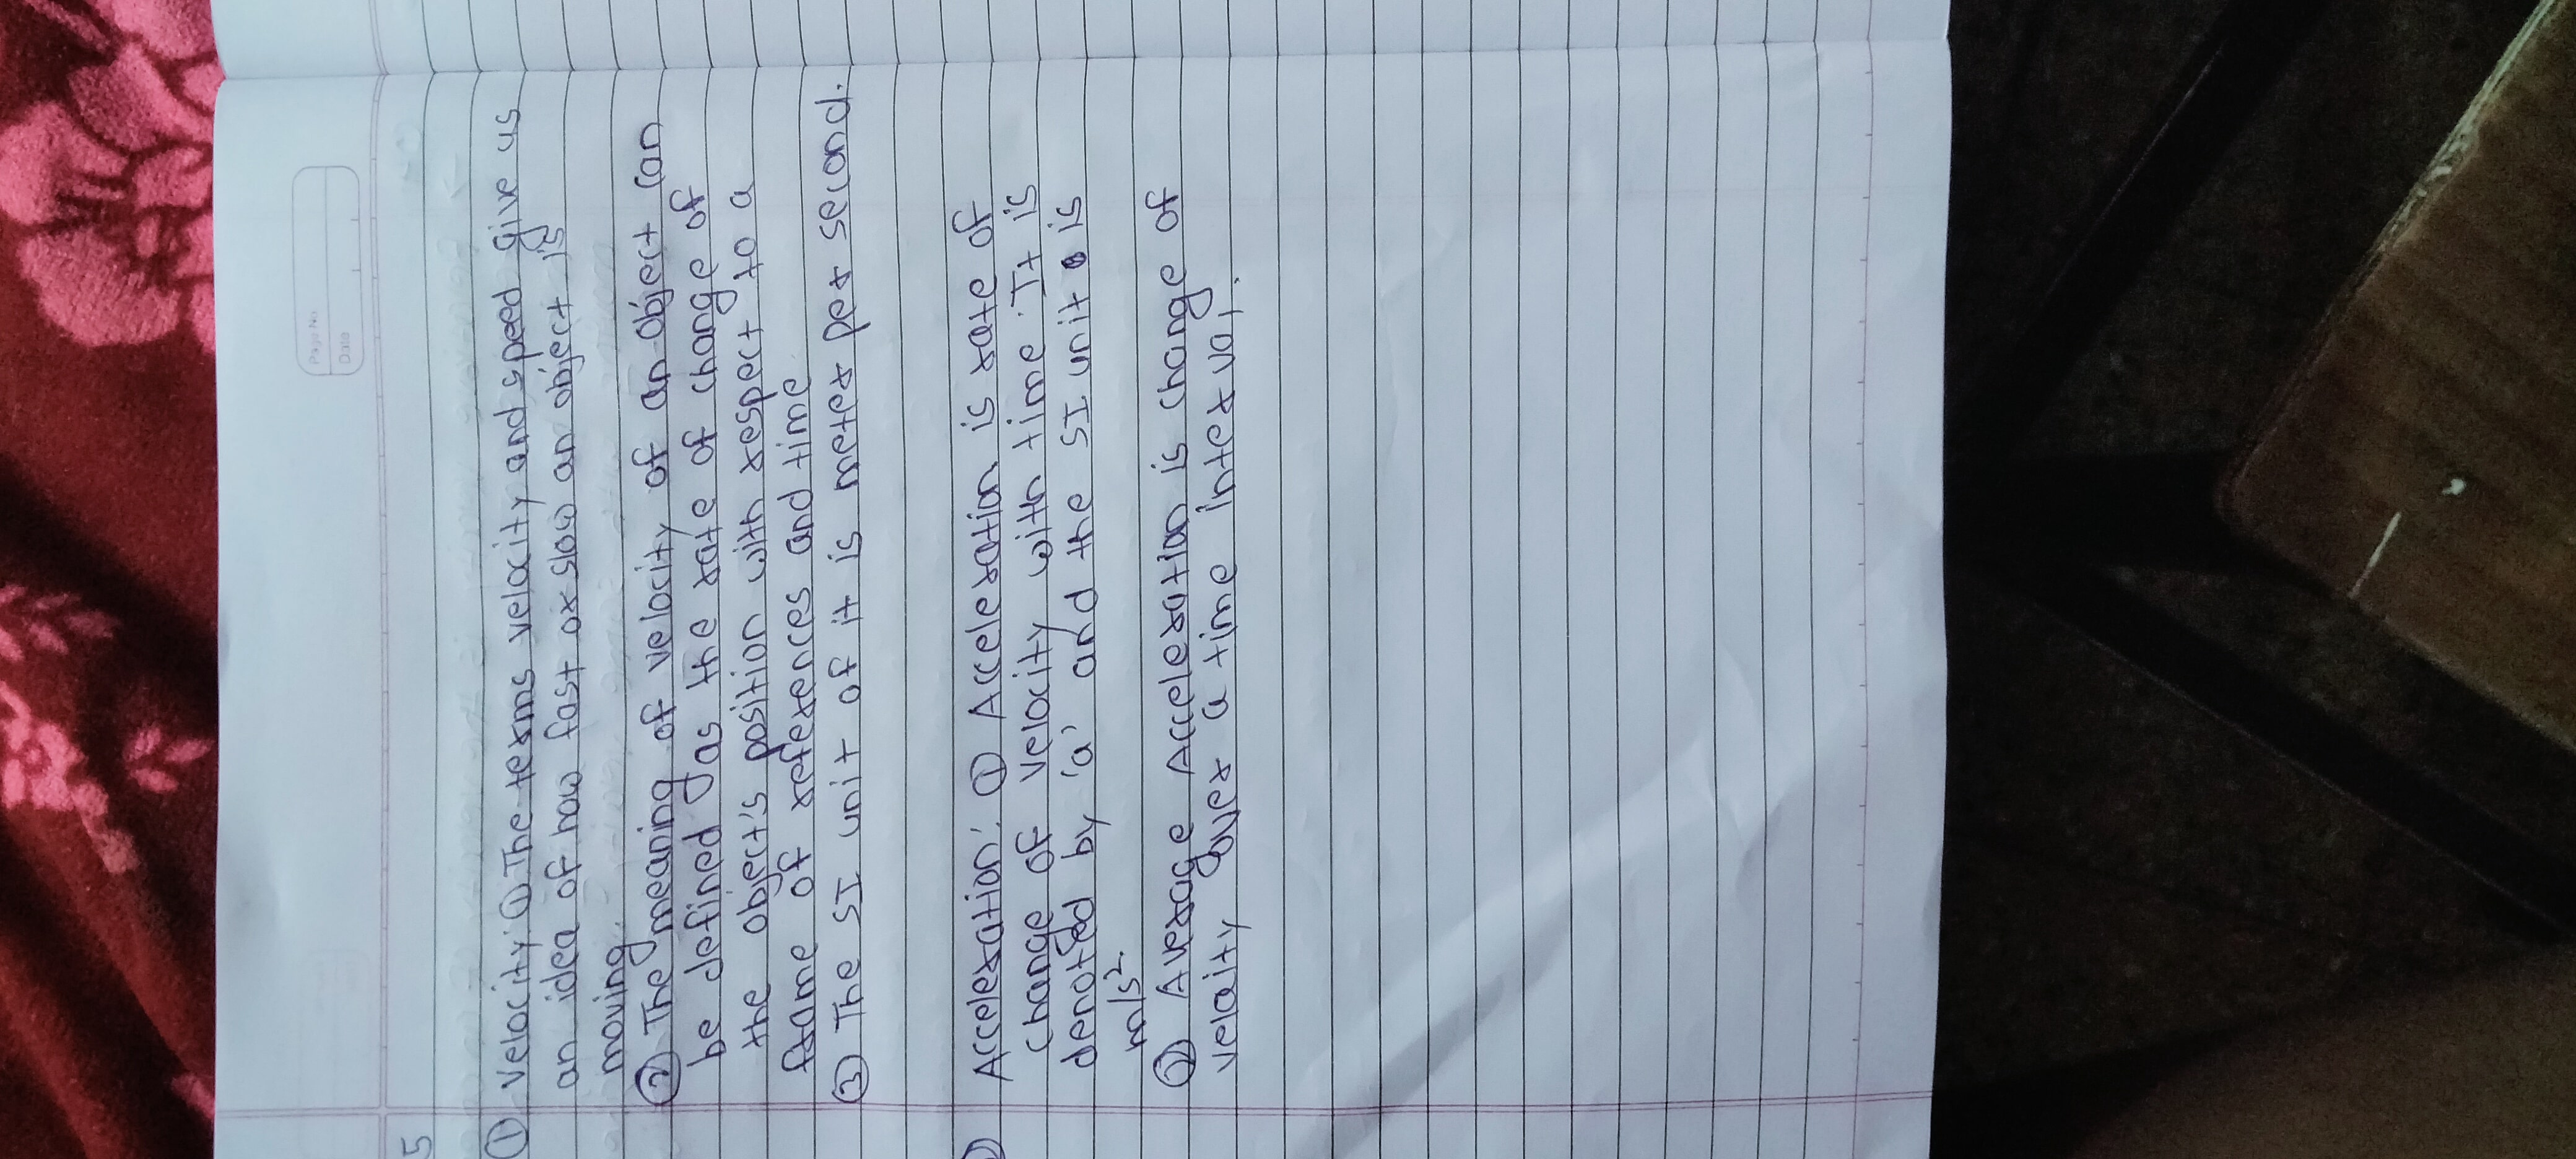 Page No.
Date
5
① Velocity: ① The terms velocity and speed give us
an idea of how fast or slow an object is
moving.
② The meaning of velocity of an object can
be defined as the rate of change of
the object's position with respect to a
frame of references and time
③ The SI unit of it is meter per second.
Acceleration: ① Acceleration is rate of
change of velocity with time. It is
denoted by 'a' and the SI unit is
m/s².
② Average Acceleration is change of
velaity over a time interval.